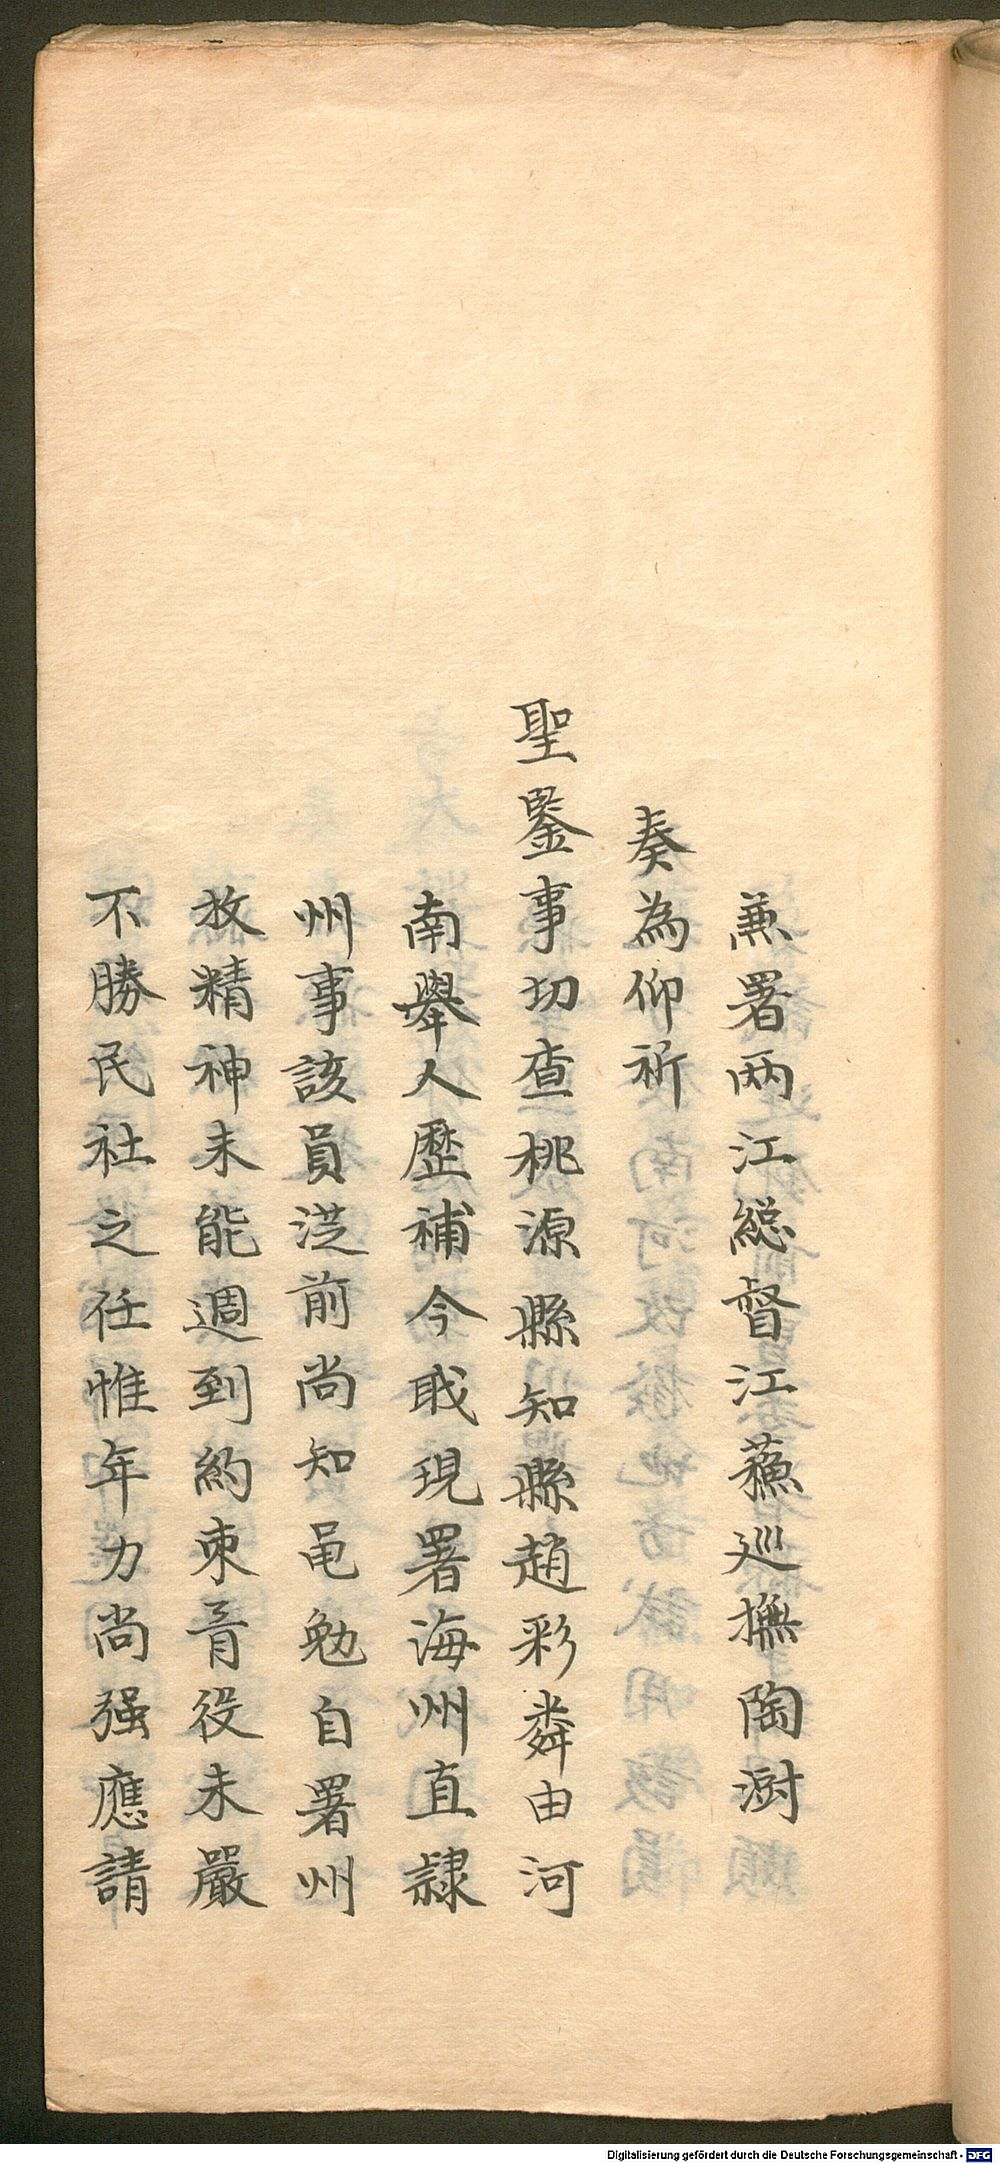 兼署两江総督江蘓巡撫陶澍
奏為仰祈
聖鑒事切查桃源縣知縣趙彩粦由河
南舉人歷補今职現署海州直隸
州事該員涖前尚知黽勉自署州
放精神未能週到約束胥役未嚴
不勝民社之任惟年力尚强應請
Digitalisierung gefördert durch die Deutsche Forschungsgemeinschaft - DFG